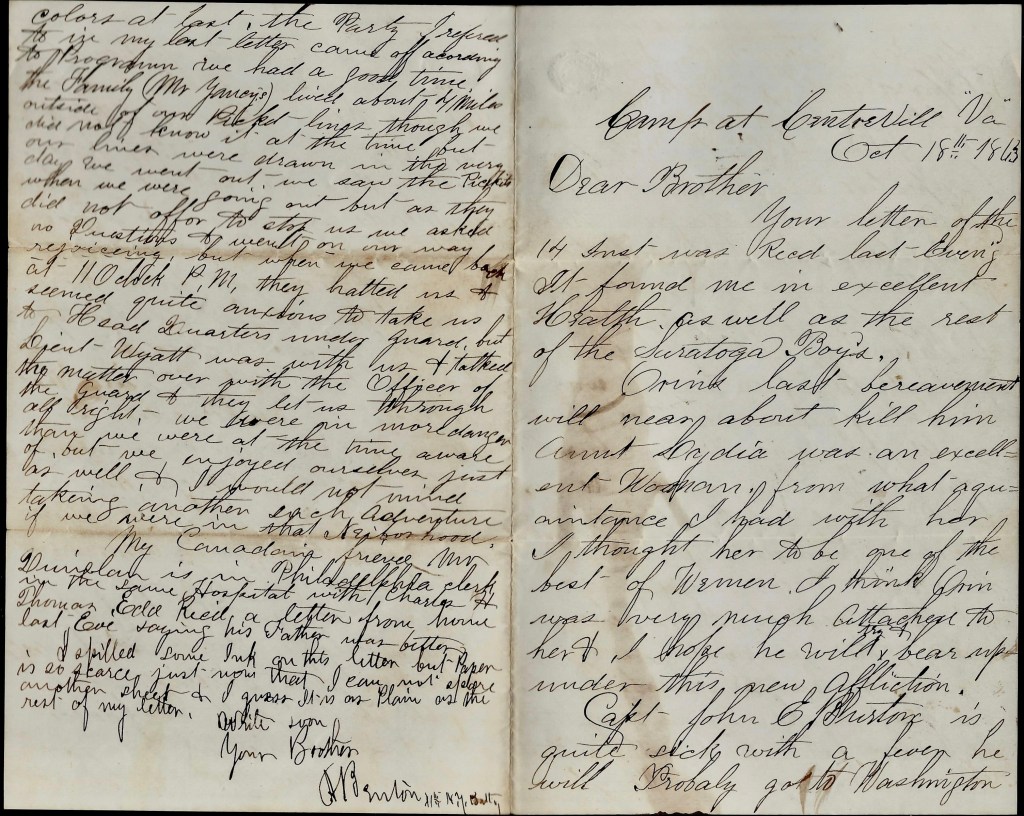 Camp at Centrevill "Va"
Oct 18th 1863
Dear Brother
Your letter of the
14 Inst was Recd last Eveng
It found me in excellent
Health. as well as the rest
of the Saratoga Boys.
Orins last bereavement
will near about kill him
Aunt Lydia was an excell=
ent Woman, from what aqu=
aintance I had with her
I thought her to be one of the
best of Women. I think Orin
was very much attached to
her & I hope he will try & bear up
under this new affliction.
Capt John E Burton is
quite sick with a fever he
will Probaly go to Washington
colors at last, the Party I refered
to in my last letter came off acording
to Programm we had a good time.
the Family (Mr Yanceys) lived about 4 Miles
outside of our Picket lines though we
did not know it at the time but
our lines were drawn in the very
day we went out we saw the Pickets
when we were going out but as they
did not offor to stop us we asked
no Questions & went on our way
rejoiceing, but when we came back
at 11 Oclock P.M, they halted us &
seemed quite anxious to take us
to Head Quarters under guard, but
Lieut Wyatt was with us & talked
the matter over with the Officer of
the Guard & they let us through
all right. we were in more danger
than we were at the time aware
of, but we enjoyed ourselves just
as well & I would not mind
takeing another such Adventure
if we were in that Neighborhood.
My Canadian friend Mr,
is in Philadelphia clerk
in the same Hospital with Charles &
Thomas, Edd Recd a letter from home
last Eve saying his Father was better
I spilled some Ink on this letter but Paper
is so scarce just now that I can not spare
another sheet & I guess It is as Plain as the
rest of my letter.
Write soon
Your Brother
Benton 11th N.Y. Batty